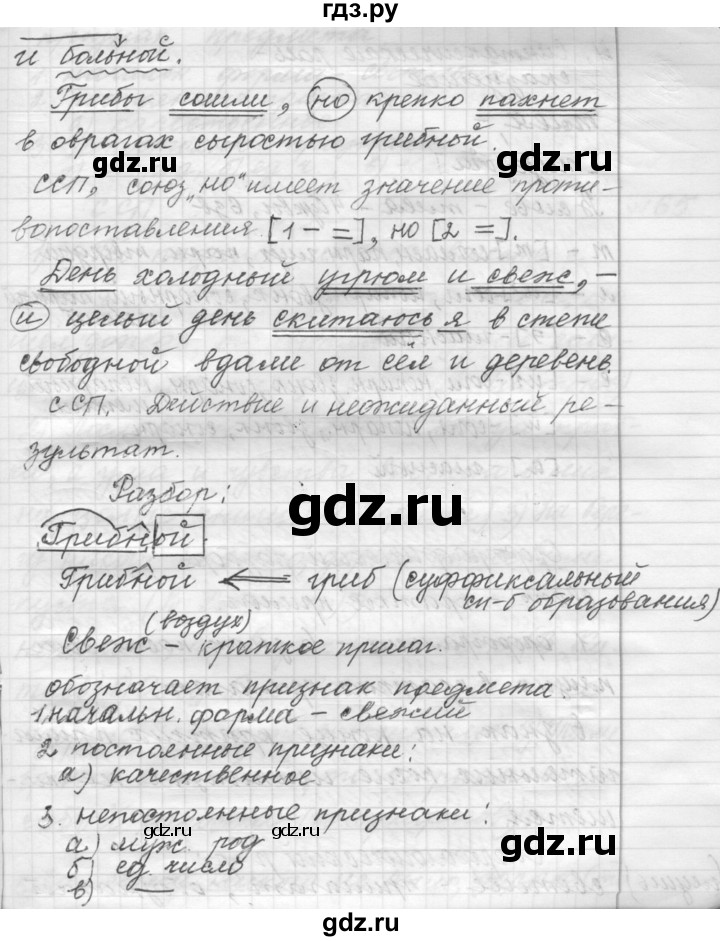 гдз.ру
и больной.
Грибы сошли, но крепко пахнет
в оврагах сыростью грибной.
ССП, союз „но“ имеет значение проти-
вопоставления. [1 – =], но [2 =].
День холодный угрюм и свеж, –
и целый день скитаюсь я в степи
свободной вдали от сёл и деревень.
ССП. Действие и неожиданный ре-
зультат.
Разбор:
Грибной.
Грибной ⟸ гриб (суффиксальный
сп-б образования)
(воздух)
Свеж – краткое прилаг.
обозначает признак предмета.
1. начальн. форма – свежий
2 постоянные признаки:
а) качественное
3. непостоянные признаки:
а) муж. род
б) ед. число
в) —
gdz.ru
gdz.ru
gdz.ru
gdz.ru
gdz.ru
gdz.ru
gdz.ru
gdz.ru
gdz.ru